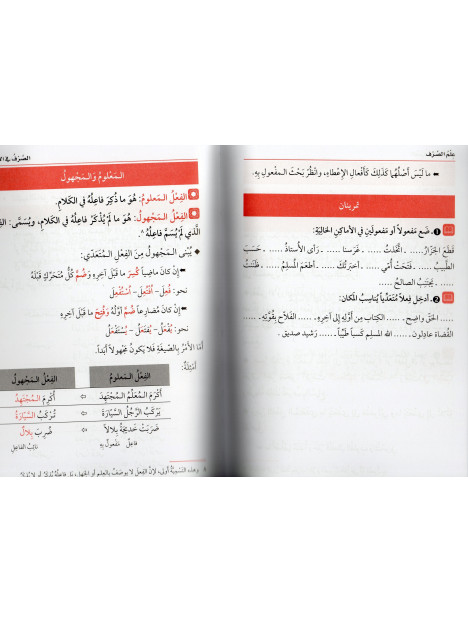 عِلْمُ الصَّرْف
⬅ ما لَيْسَ أَصْلُهُما كَذَلِكَ كَأَفْعالِ الإِعْطاءِ، وانْظُرْ بَحْثَ المفعولِ بِهِ.
تمرينان
❶ـ ضَع مَفعولاً أو مَفعولَينِ في الأماكنِ الخاليَةِ:
قَطَعَ الجَزّارُ ..... . اتَّخَذْتُ ..... . غَرَسنا ..... . رَأى الأستاذُ ..... . حَسَبَ
الطَّبيبُ ..... . فَتَحَتْ أُمِّي ..... . اخترتُكَ ..... . أطعَمَ المسلِمُ ..... . ظَنَنْتُ
..... . يَجتَنِبُ الصالحُ .....
❷ـ أدخِل فِعلاً مُتَعَدّياً يُناسِبُ المكانَ:
..... الحَقَّ واضِحٌ. ..... الكِتابَ مِن أوَّلِهِ إلى آخِرِهِ. ..... الفَلّاحُ بِقُوَّتِهِ. .....
القُضاةُ عادِلون. ..... اللهُ المسلِمَ كَسباً طَيِّباً. ..... رَشيد صديق.
الصَّرْفُ في
المَعْلومُ والمَجْهولُ
الفِعْلُ المَعلومُ: هُوَ ما ذُكِرَ فاعِلُهُ في الكَلامِ.
الفِعْلُ المَجْهولُ: هُوَ ما لَمْ يُذْكَرْ فاعِلُهُ في الكَلامِ، ويُسَمَّى:
الَّذي لَمْ يُسَمَّ فاعِلُهُ ^.
◆ يُبْنَى المَجْهولُ مِنَ الفِعْلِ المُتَعَدِّي:
⬅ إنْ كانَ ماضِياً كُسِرَ ما قَبْلَ آخِرِهِ وَضُمَّ كُلُّ مُتَحَرِّكٍ قَبْلَهُ
نحو: فُعِلَ- أُفْتُعِلَ- أُسْتُفْعِلَ
⬅ إنْ كانَ مُضارِعاً ضُمَّ أوَّلُهُ وَفُتِحَ ما قَبْلَ آخِرِهِ
نحو: يُفْعَلُ- يُفْتَعَلُ- يُسْتَفْعَلُ
أَمّا الأَمْرُ بِالصِّيغَةِ فَلا يَكونُ مَجْهولاً أَبَداً.
أَمْثِلَةٌ:
الفِعْلُ المَعلومُ الفِعْلُ المَجْهولُ
أَكْرَمَ المُعَلِّمُ المُجْتَهِدَ ⇦ أُكْرِمَ المُجْتَهِدُ
يَرْكَبُ الرَّجُلُ السَّيّارَةَ ⇦ تُرْكَبُ السَّيّارَةُ
ضَرَبَتْ خَديجَةُ بِلالاً ⇦ ضُرِبَ بِلالٌ
فاعِلٌ مَفْعولٌ بِهِ نائِبُ الفاعِلِ
وهذه التَّسمِيَةُ أَوْلى، لأنَّ الفِعْلَ لا يوصَفُ بالعِلمِ أو الجَهلِ، بَل فاعلُهُ يُذكَرُ أو لا يُذكَرُ